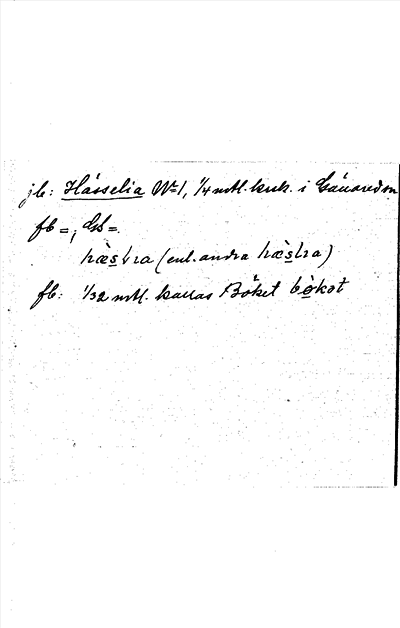 jb: Hässelia No 1, 1/4 mtl. krh. i Gånaredm
fb =; GS =.
hæ̀sḷra (enl. andra hæ̀sḷra)
fb: 1/32 mtl. kallas Böket bö̀kət